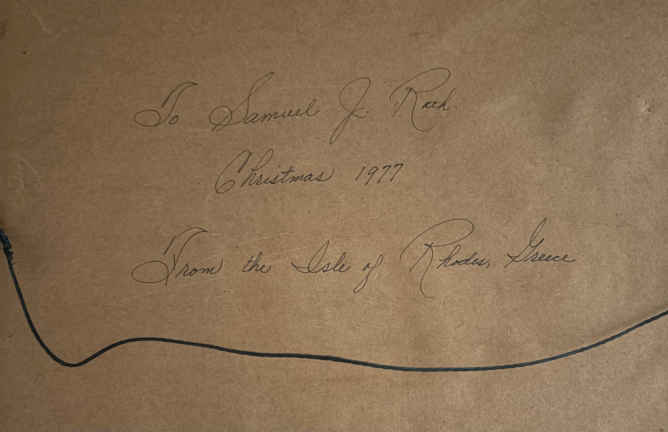 To Samuel J. Rach
Christmas 1977
From the Isle of Rhodes, Greece